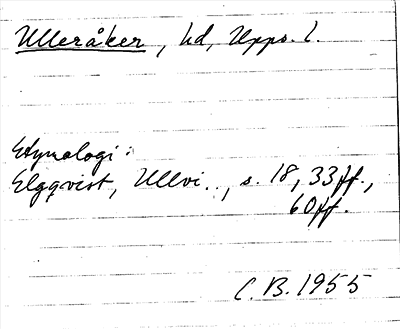 Ulleråker, hd, Upps. l.
Etymologi:
Elgqvist, Ullvi.., s. 18, 33ff.,
60ff.
C. B. 1955